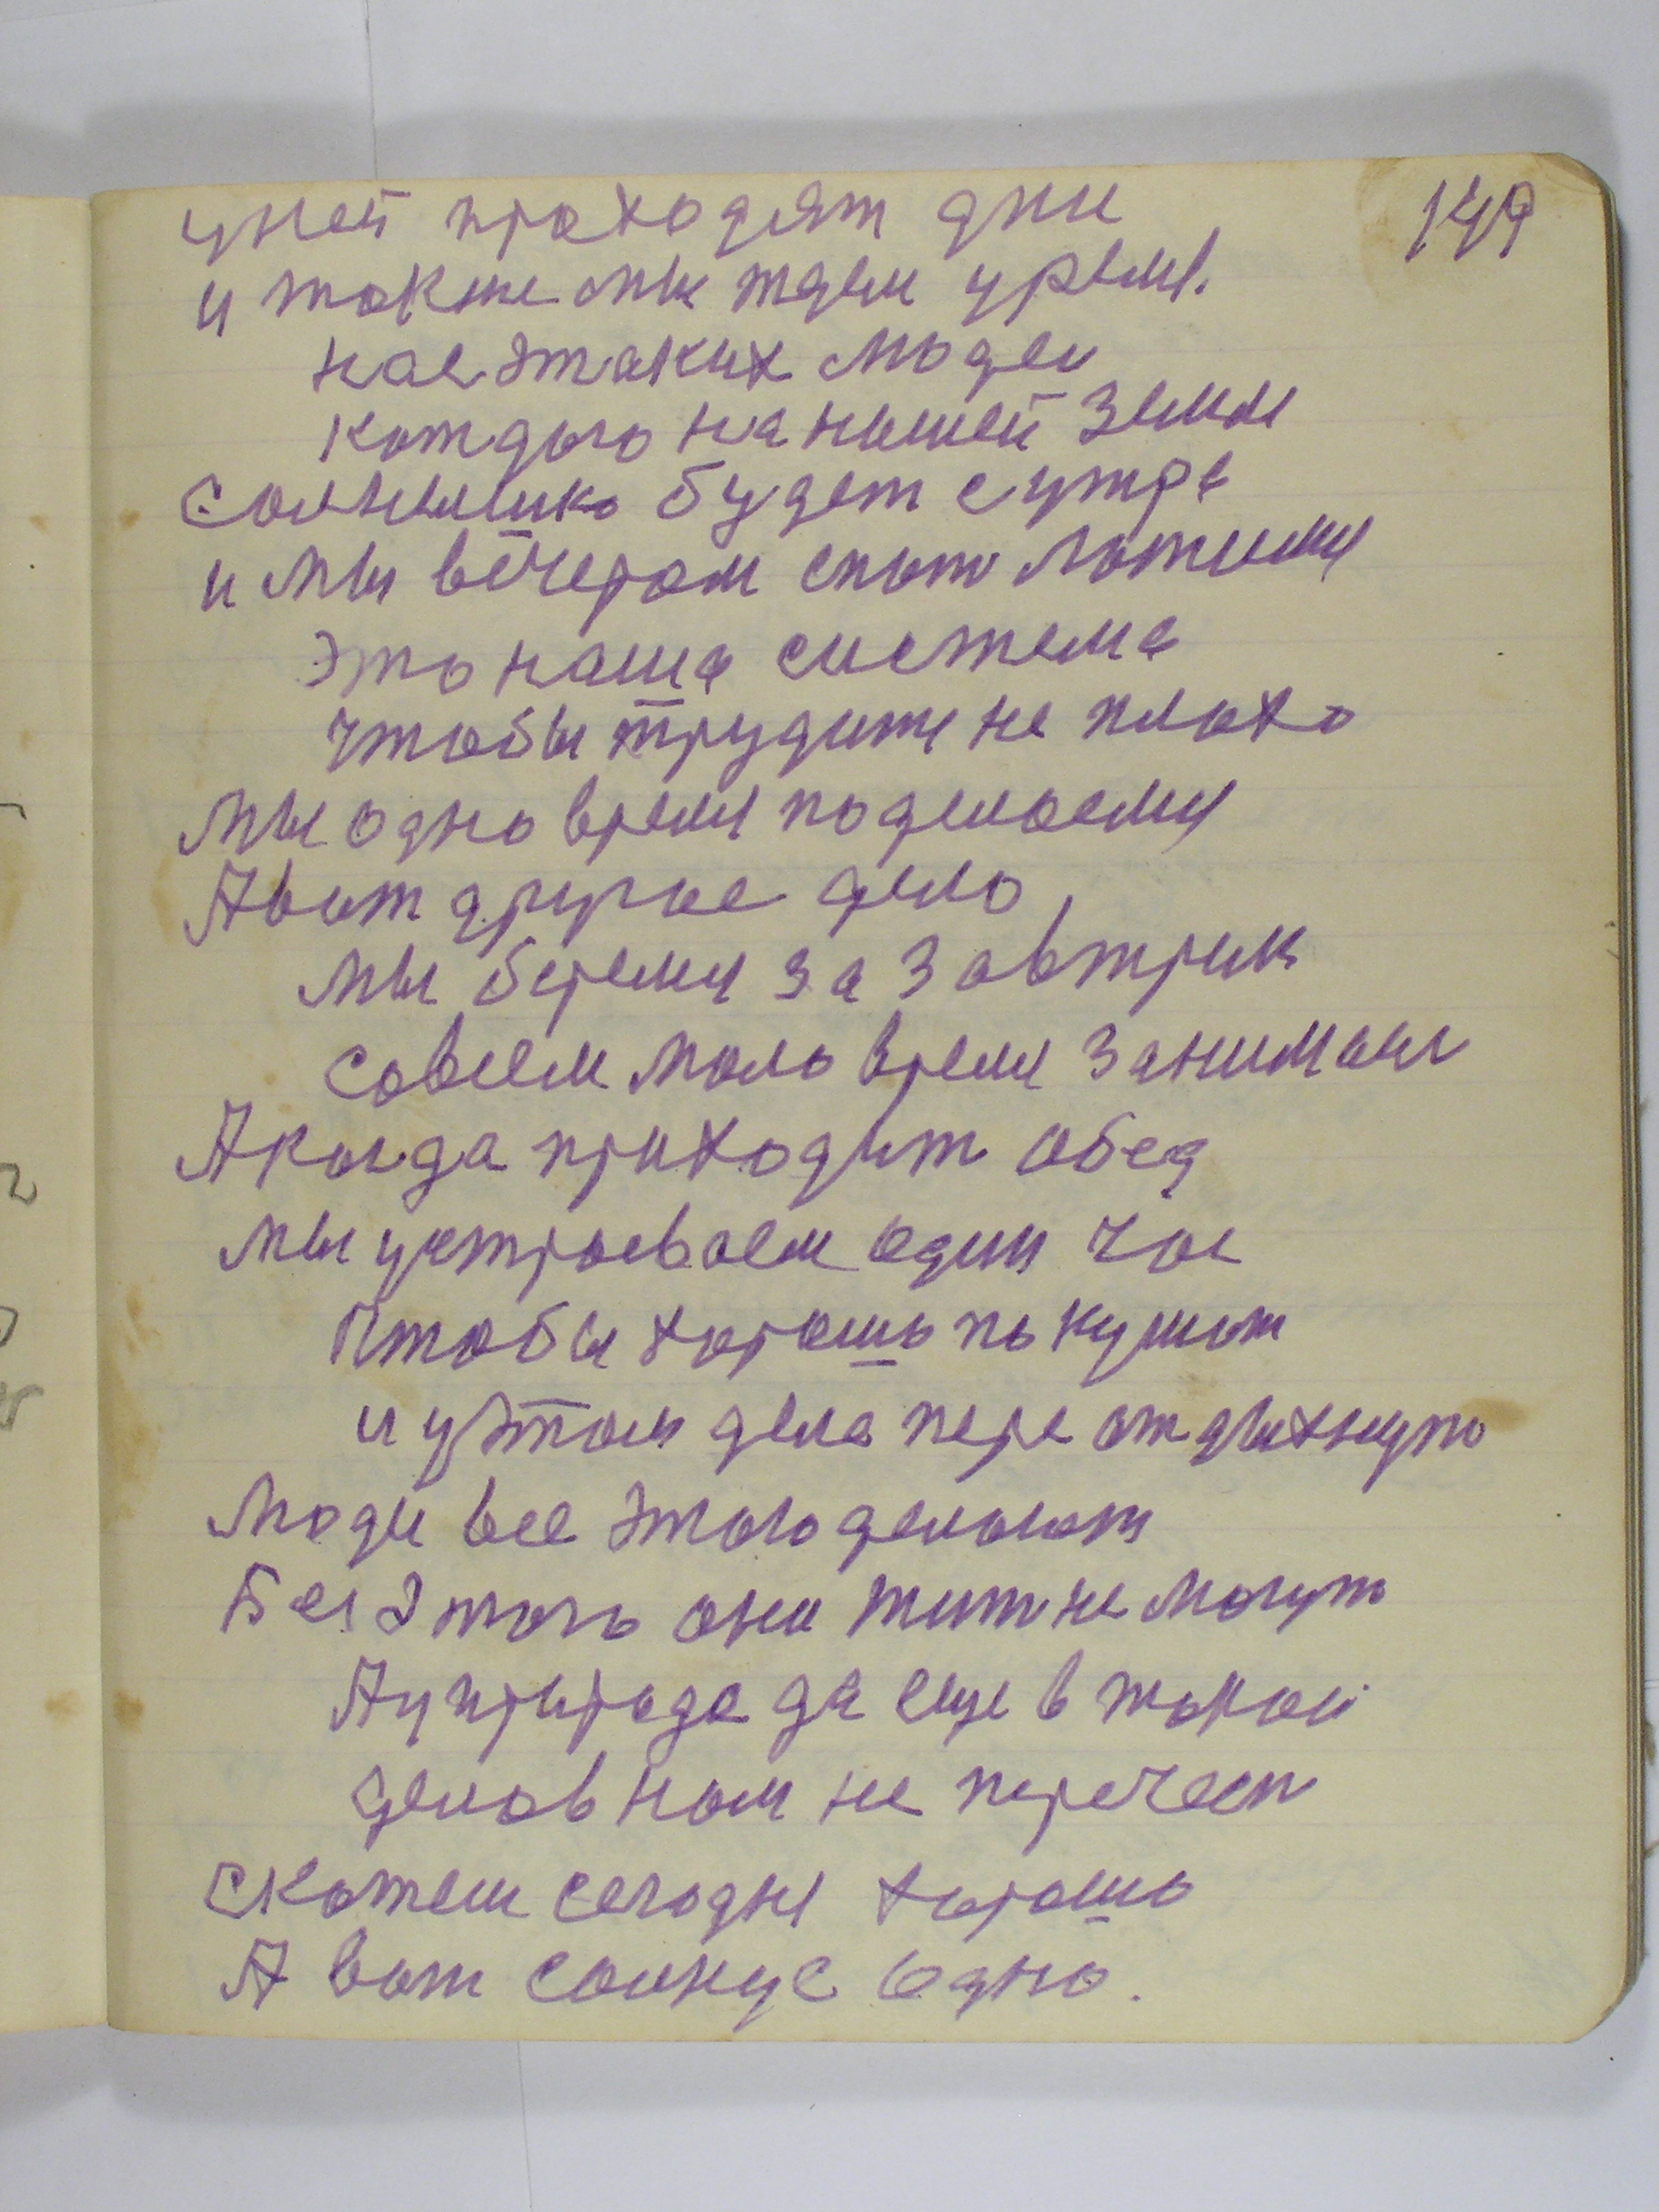 149
у ней проходят дни
и также мы ждем уреме.
нас этаких людей
каждого на нашей земли
солнышко будет с утра
и мы вечером спать ложимя
это наша система
чтобы трудится не плохо
мы одно время поделаемя
А вот другое дело
мы беремя за завтрик
совсем мало время занимаем
А когда приходит обед
мы устроеваем один час
чтобы хорошо покушат
и у этом дела пере отдыхнуть
люди все этого делают
Без этого они жит не могуть
А у природа да еще в такой
делов нам не перечест
скажем сегодня хорошо
А вот солнце одно.